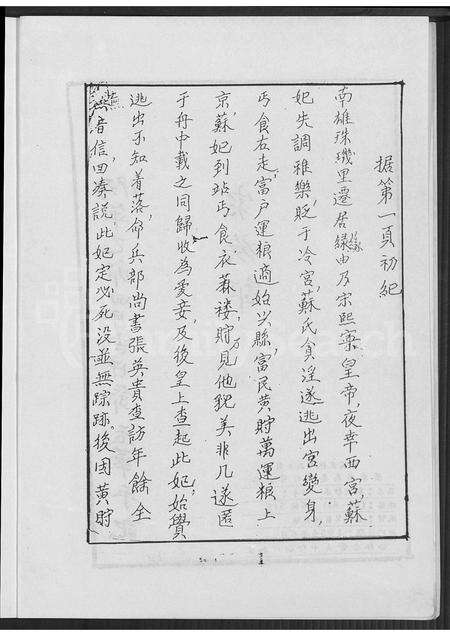 据第一頁初紀
南雄珠璣里遷居緣由及宋熙寧皇帝夜幸西宮,蘇
妃失調雅樂,貶于冷宮,蘇氏貪淫遂逃出宮變身,
丐食右走,富戶運粮適始兴縣,富民黄貯萬運粮上
京,蘇妃到站丐食衣蔴褛,貯万見他貌美非凡遂匿
于舟中載之同歸收為愛妾,及後皇上查起此妃始覺
逃出不知着落,命兵部尚書張英貴查訪年餘全
無音信回湊謊,此妃定必死没並無踪跡。後因黄貯